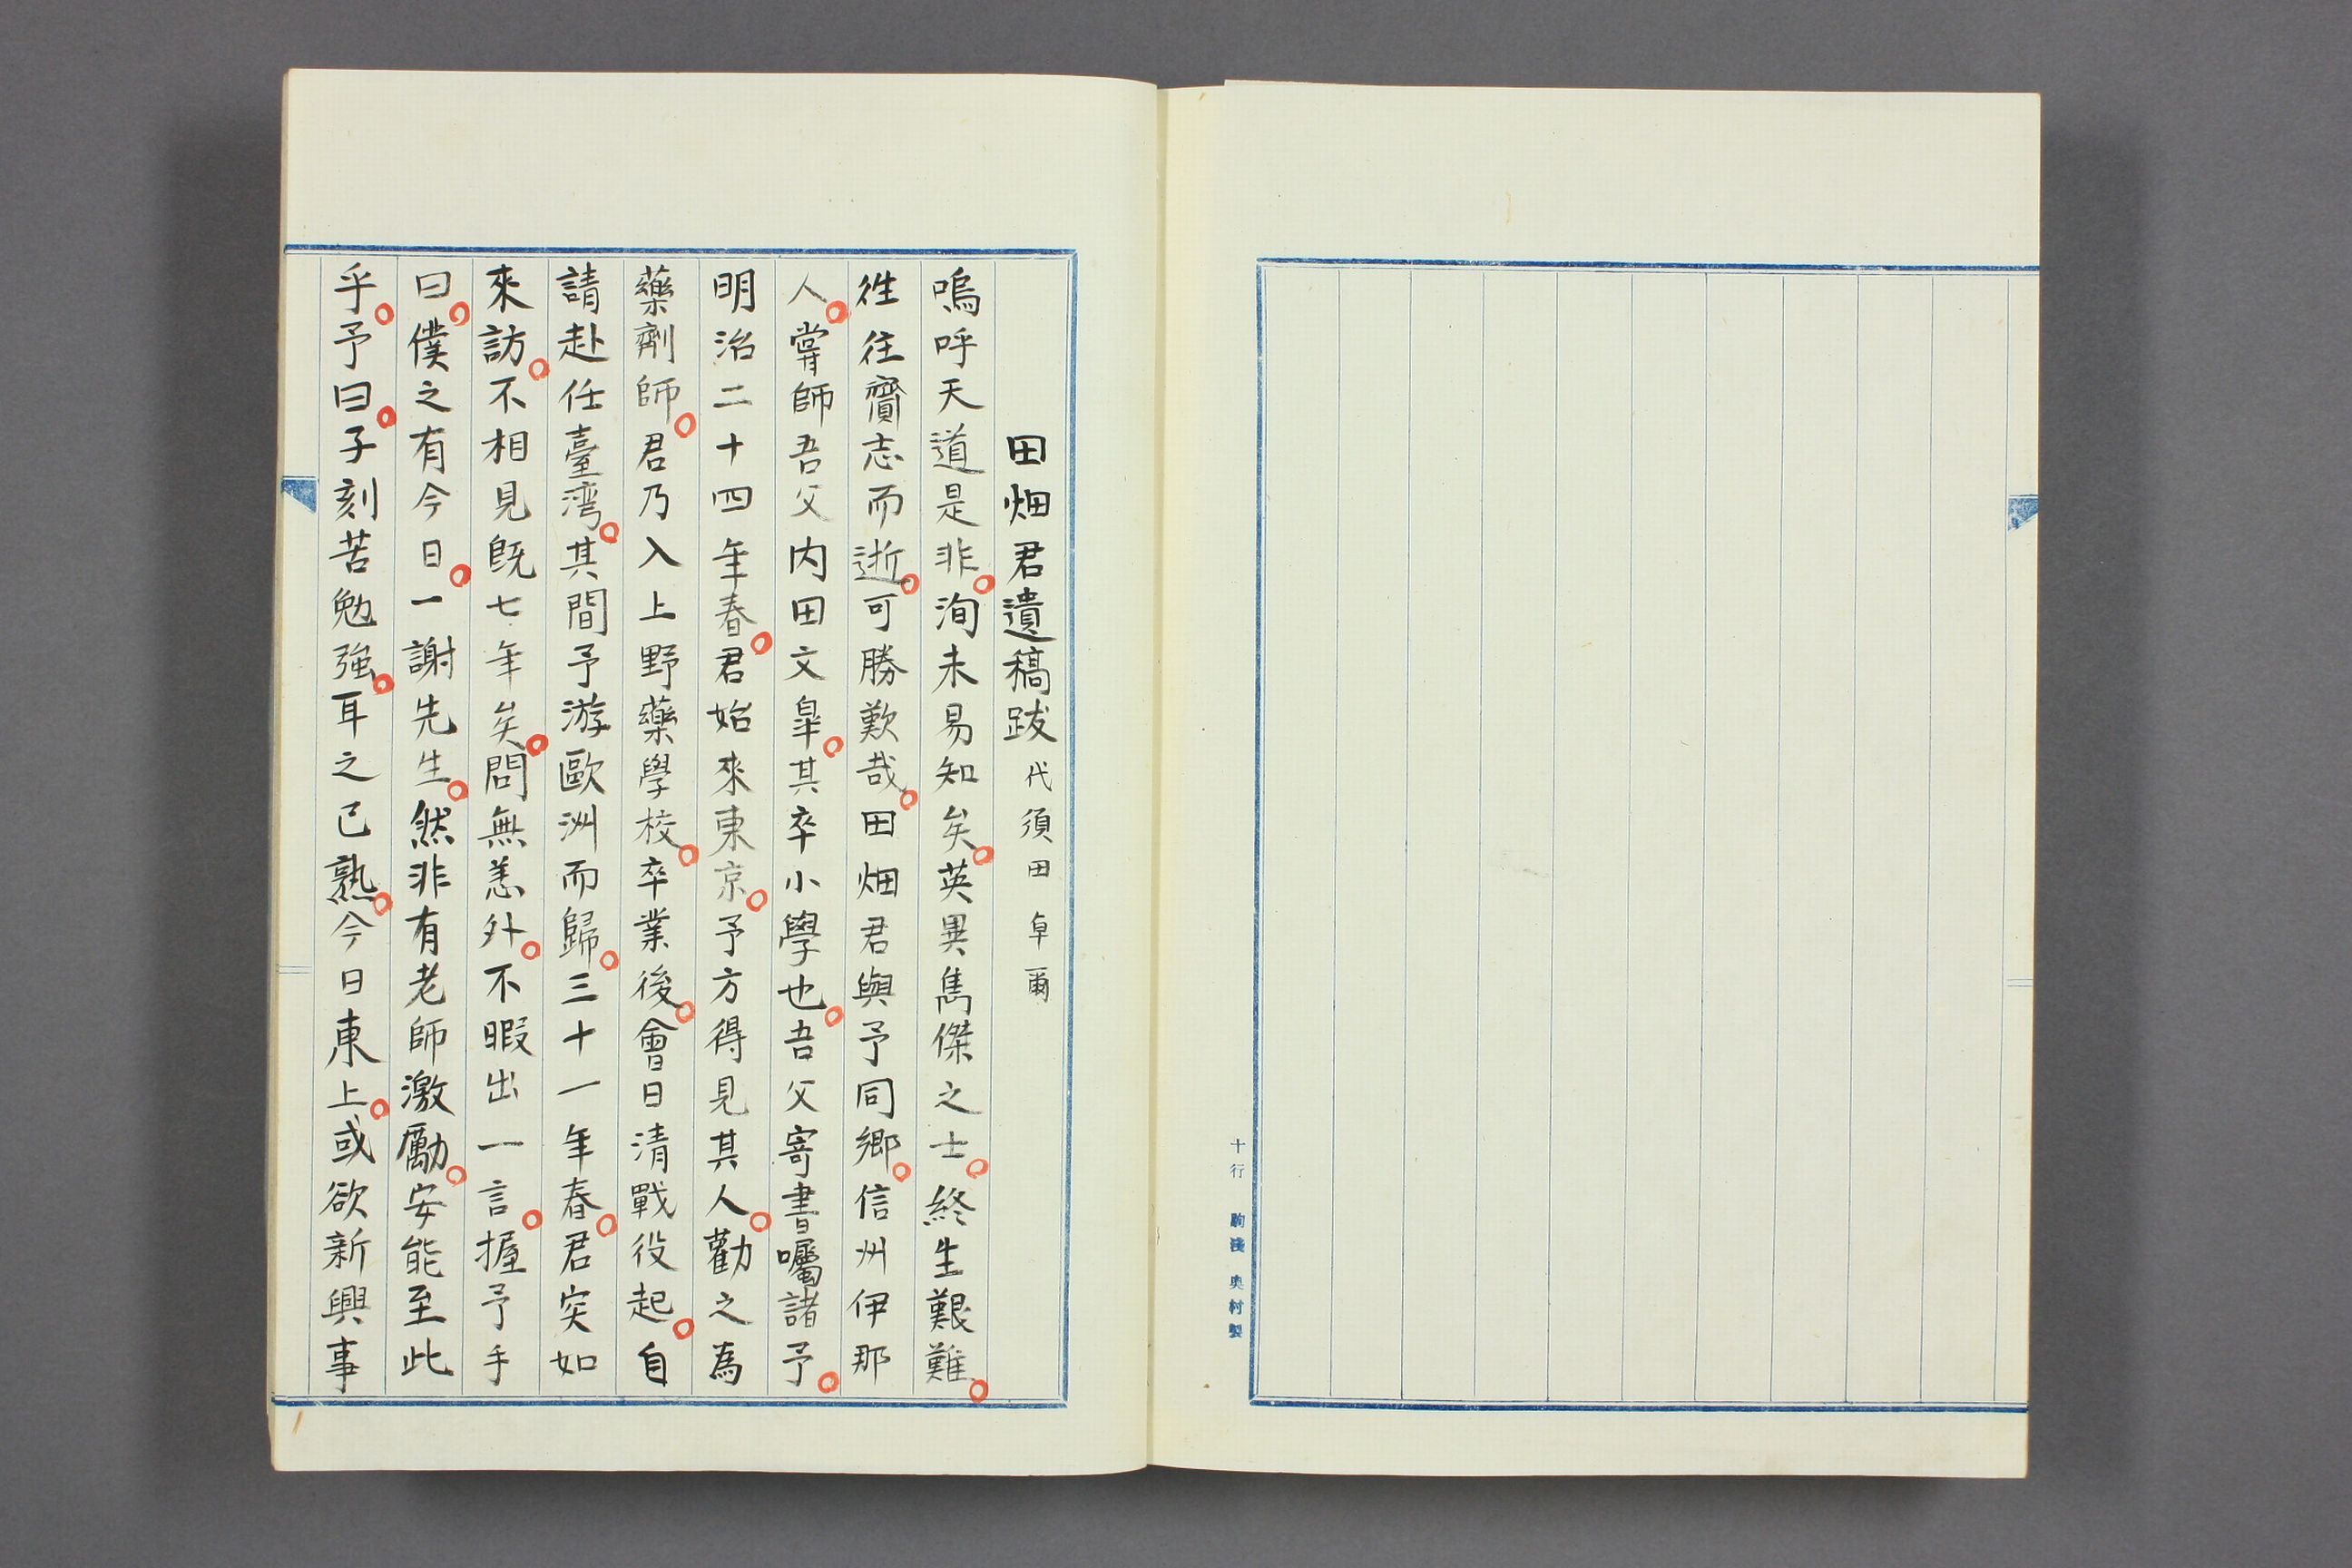 十行 駒後 奥村製
田畑君遺稿跋 代須田卓爾
嗚呼天道是非。洵未易知矣。英異雋傑之士。終生艱難。
往往齎志而逝。可勝歎哉。田畑君與予同鄉。信州伊那
人。嘗師吾父内田文皐。其卒小學也。吾父寄書囑諸予。
明治二十四年春。君始來東京。予方得見其人。勸之為
藥劑師。君乃入上野藥學校。卒業後。會日清戰役起。自
請赴任臺湾。其間予游歐洲而歸。三十一年春。君突如
來訪。不相見既七年矣。問無恙外。不暇出一言。握予手
曰。僕之有今日。一謝先生。然非有老師激勵。安能至此
乎。予曰。子刻苦勉強。耳之已熟。今日東上。或欲新興事